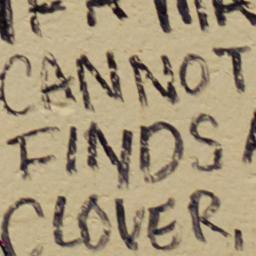 IF A
CANNOT
FINDS
CLOVER,